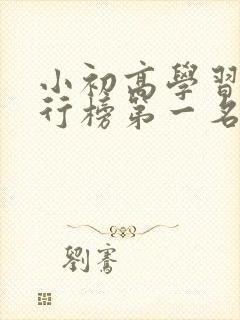 小初高學習
行榜第一名
劉騫